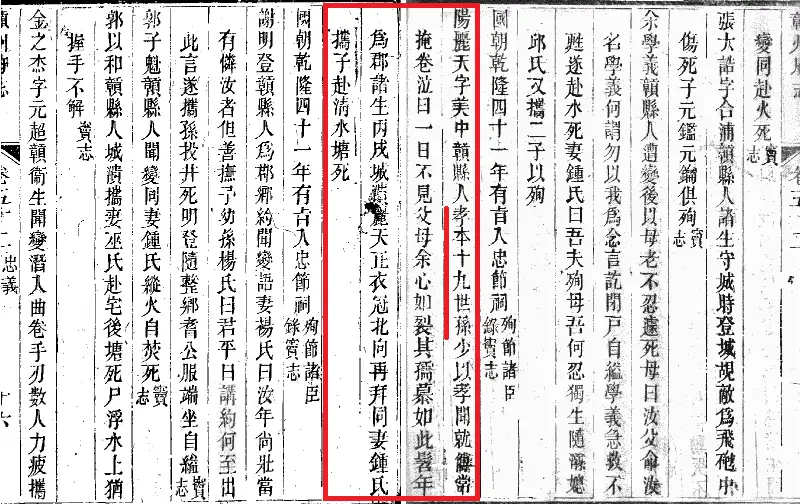 贛州府志
卷五十二
變同赴火死竇志
張大誥字合浦贛縣人諸生守城時登城覘敵為飛砲中
傷死子元鑑元鑰俱殉竇志
余學義贛縣人遭變後以母老不忍遽死母曰汝父命汝
名學義何謂勿以我為念言訖閉戶自縊學義急救不
甦遂赴水死妻鍾氏曰吾夫殉母吾何忍獨生隨
邱氏又攜二子以殉
國朝乾隆四十一年有旨入忠節祠殉節諸臣錄竇志
陽麗天字美中贛縣人孝本十九世孫少以孝聞就傳常
掩卷泣曰一日不見父母余心如裂其孺慕如此髫年
為郡諸生丙戌城潰麗天正衣冠北向再拜同妻鍾氏
攜子赴清水塘死
國朝乾隆四十一年有旨入忠節祠殉節諸臣錄竇志
謝明登贛縣人為郡鄉約聞變語妻楊氏曰汝年尚壯當
有憐汝者但善撫予幼孫楊氏曰君平日講約何至出
此言遂攜孫投井死明登隨整鄉耆公服端坐自縊竇志
郭子魁贛縣人聞變同妻鍾氏縱火自焚死竇志
郭以和贛縣人城潰攜妻巫氏赴宅後塘死尸浮水上猶
握手不解竇志
金之杰字元超贛衛生聞變潛入曲巷手刃數人力疲攜
贛州府志
卷五十二 忠義
十六